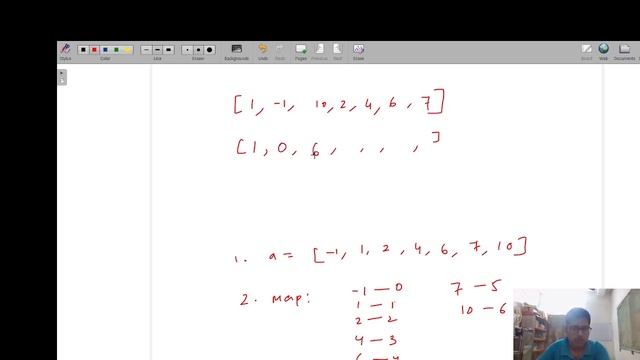 Stylus
Color
Line
Eraser
Backgrounds
Undo
Redo
Pages
Previous
Next
Erase
Board
Web
Documents
[1, -1, 10, 2, 4, 6, 7]
[1, 0, 6, , , , ]
1. a = [-1, 1, 2, 4, 6, 7, 10]
2. map: -1 — 0 7 — 5
1 — 1 10 — 6
2 — 2
4 — 3
6 — 4